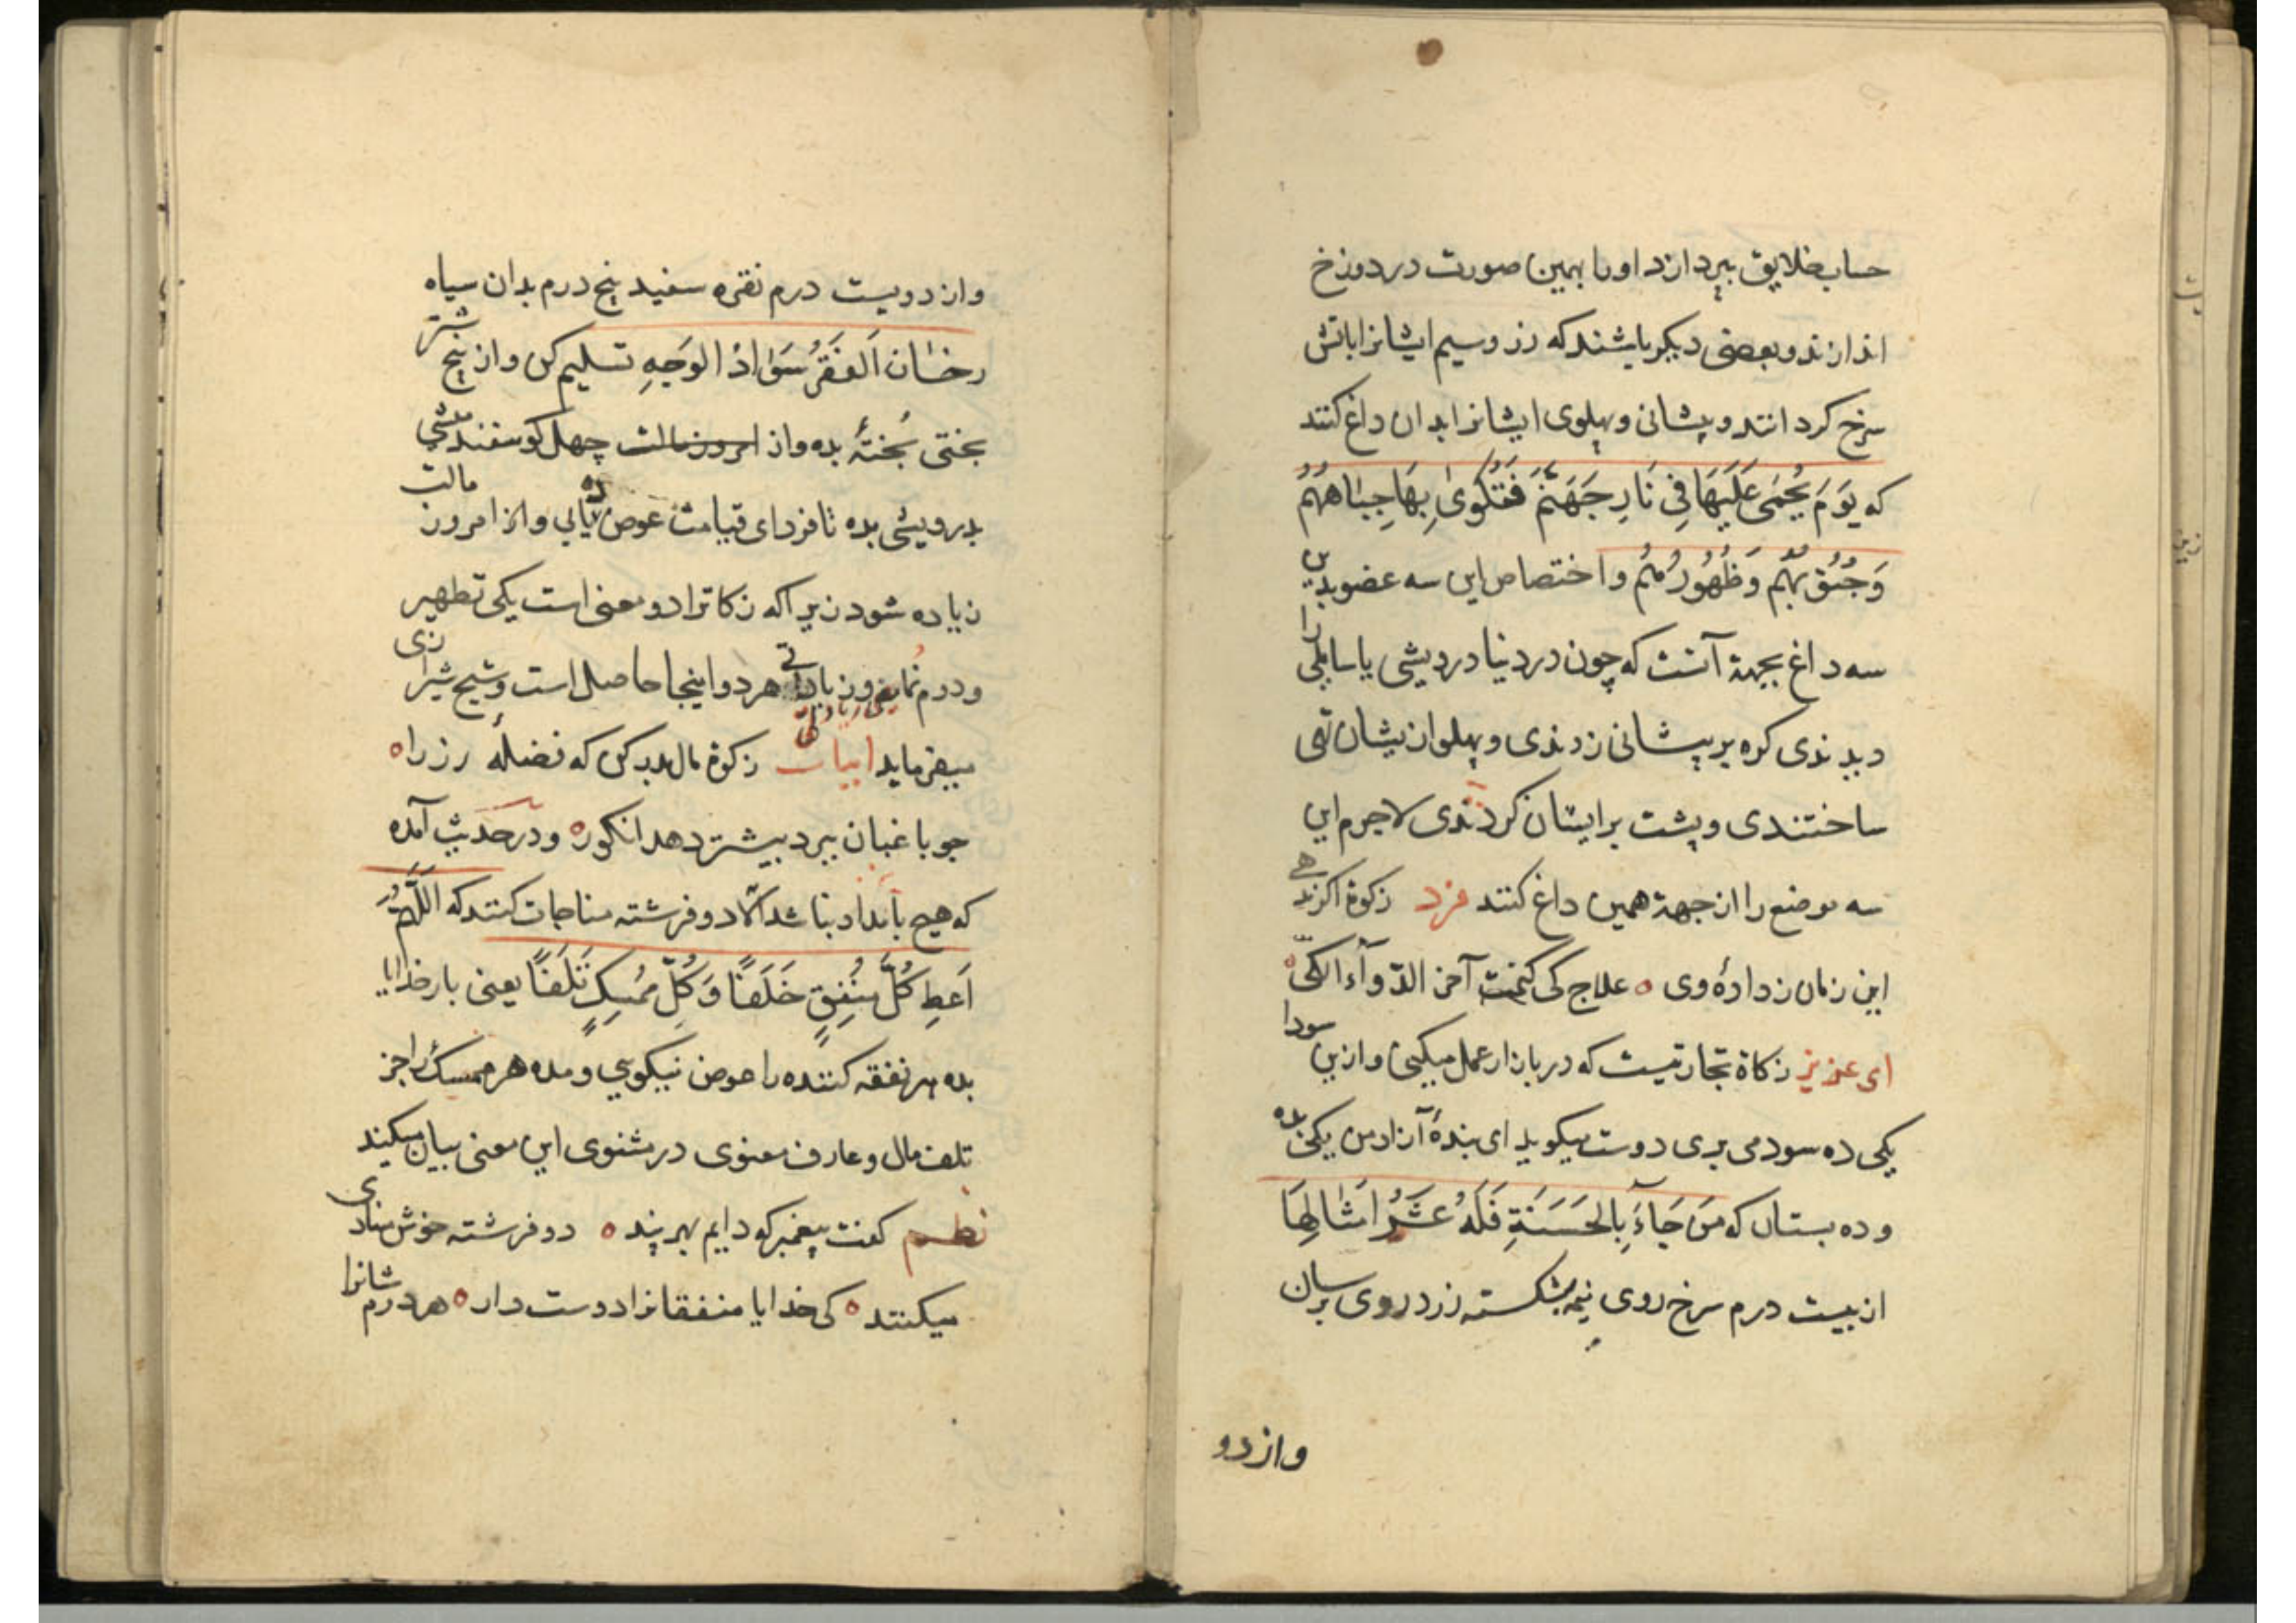 حساب خلایق بپردازد او را بهمین صورت در دوزخ
اندازند و بعضی دیکر باشند که زر و سیم ایشانرا باتش
سرخ کردانند و پیشانی و پهلوی ایشانرا بدان داغ کنند
که یَوْمَ یُحْمٰی عَلَیْهَا فِی نَارِ جَهَنَّمَ فَتُکْوٰی بِهَا جِبَاهُهُمْ
وَجُنُوبُهُمْ وَظُهُورُهُمْ و اختصاص این سه عضو بدین
سه داغ بجهة آنست که چون در دنیا درویشی یا سایلی را
دیدندی کره بر پیشانی زدندی و پهلو از یشان تهی
ساختندی و پشت بر ایشان کردندی لاجرم این
سه موضع را از جهة همین داغ کنند فرد زکوة اکر ندهی
این زمان ز داده وی ه علاج کی کنمت آخر الدّوآء الکیّ ه
ای عزیز زکاة تجارتیست که در بازار عمل میکنی و ازین سودا
یکی ده سود می بری دوست میکوید ای بندهٔ آزاد من یکی بده
و ده بستان که مَنْ جَآءَ بِالْحَسَنَةِ فَلَهُ عَشْرُ اَمْثَالِهَا
از بیست درم سرخ روی نیم بشکسته زرد روی برسان
وازدو
واز دویست درم نقره سفید پنج درم بدان سیاه
رخسان اَلْفَقْرُ سَوَادُ الْوَجْهِ تسلیم کن و از پنج شتر
بختی بُختهٔ بده و از امروز مالت چهل کوسفند میشی
بدرویشی بده تا فردای قیامت عوض ده یابی و از امروز مالت
زیاده شود زیرا که زکاترا دو معنی است یکی تطهیر
و دوم نما یعنی زیادتی هر دو اینجا حاصل است و شیخ شیرازی
میفرماید ابیات زکوة مال بدر کن که فضلهٔ رز را ه
چو باغبان ببرد بیشتر دهد انکور ه و در حدیث آمده
که هیچ بامداد نباشد الّا دو فرشته مناجات کنند که اَللّٰهُمَّ
اَعْطِ کُلَّ مُنْفِقٍ خَلَفًا وَ کُلَّ مُمْسِکٍ تَلَفًا یعنی بار خدایا
بده هر نفقه کننده را عوض نیکویی و مده هر ممسک را جز
تلف مال و عارف معنوی در مثنوی این معنی بیان میکند
نظم کفت پیغمبر که دایم بهر پند ه دو فرشته خوش منادی
میکنند ه کی خدایا منفقانرا دوست دار ه هر درم شانرا